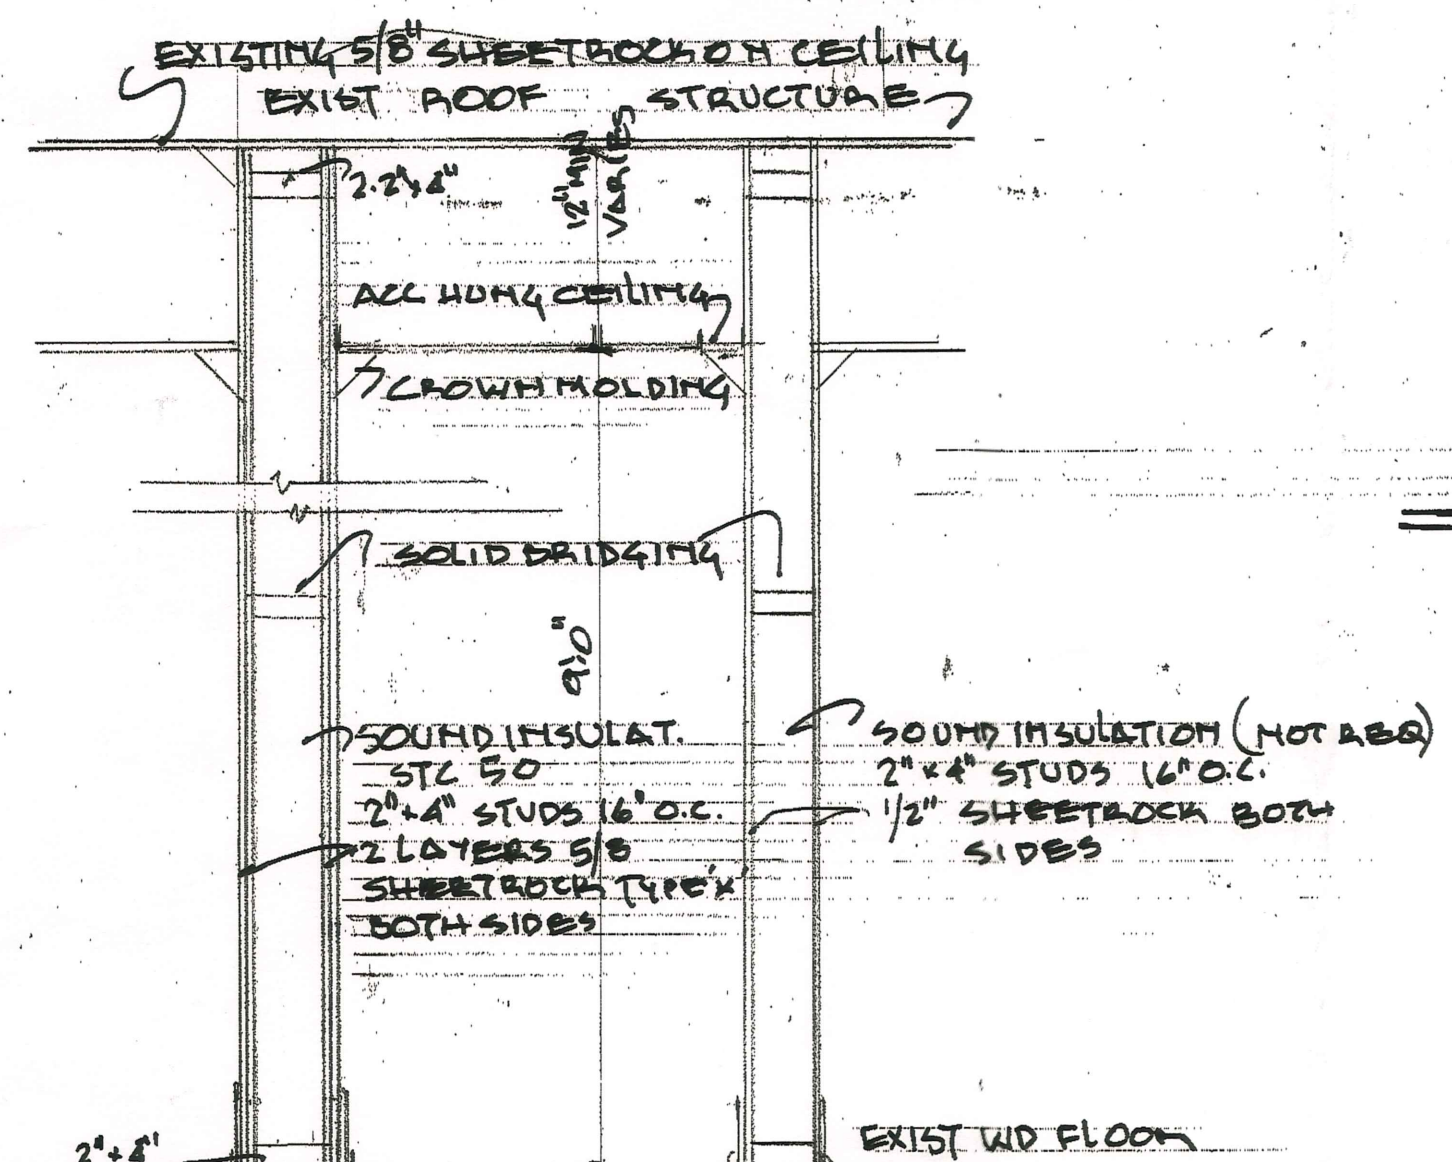 EXISTING 5/8" SHEETROCK ON CEILING
EXIST ROOF STRUCTURE
2·2"x4"
12" MIN
VARIES
ACC HUNG CEILING
CROWN MOLDING
SOLID BRIDGING
9'-0"
SOUND INSULAT.
STC 50
2"+4" STUDS 16" O.C.
2 LAYERS 5/8
SHEETROCK TYPE 'X'
BOTH SIDES
SOUND INSULATION (NOT REQ)
2"x4" STUDS 16" O.C.
1/2" SHEETROCK BOTH
SIDES
2"+4"
EXIST WD FLOOR